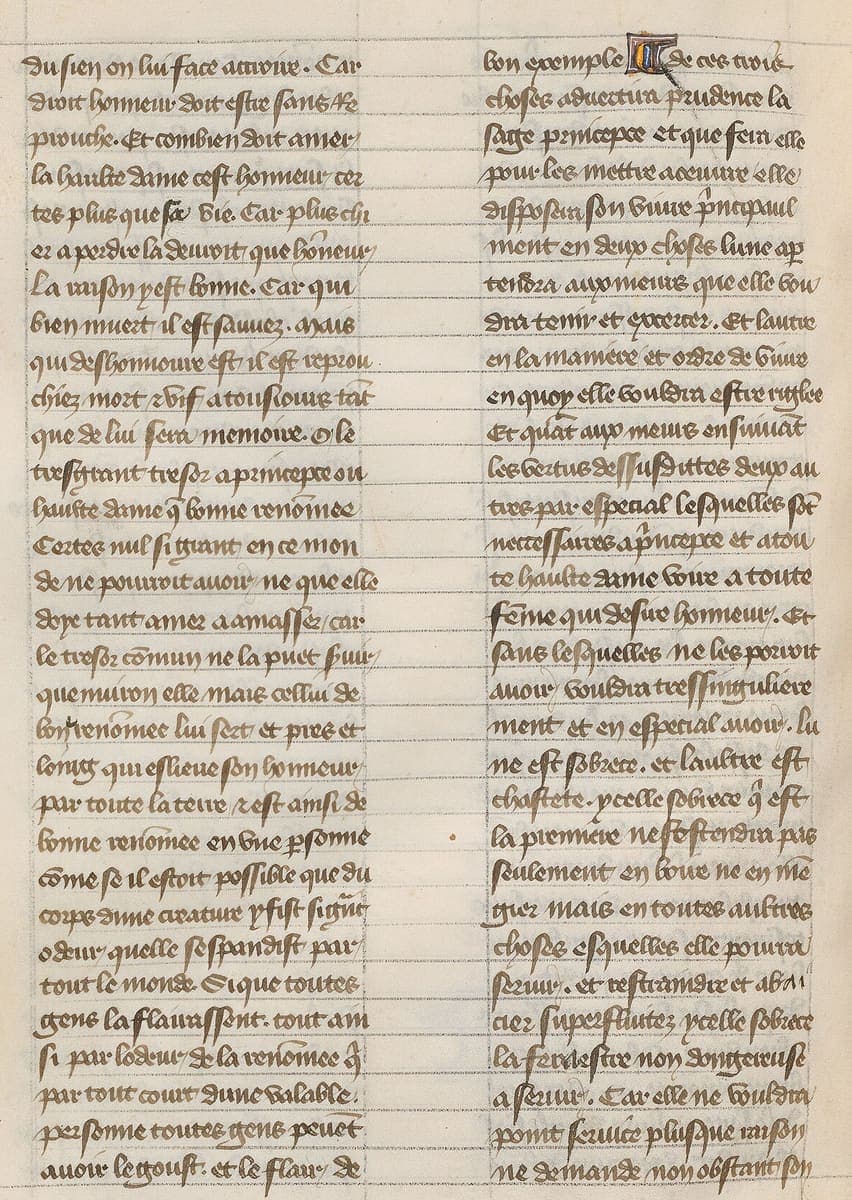 du sien on lui face accroire. Car
droit honneur doit estre sans Re
prouche. Et combien doit amer
la haulte dame cest honneur cer
tes plus que sa vie. Car plus chi
er a perdre la deuroit que hōneur
La raison y est bonne. Car qui
bien muert il est sauuez. mais
qui deshonnoure est il est reprou
chiez mort & vif a tousiours tāt
que de lui sera memoire. O le
tresgrant tresor a princepce ou
haulte dame q̄ bonne renōmee
Certes nul si grant en ce mon
de ne pourroit auoir ne que elle
doye tant amer a amasser car
le tresor cōmun ne la puet ſuir
quenuiron elle mais cellui de
bon renōmee lui sert et pres et
loing qui eslieue son honneur
par toute la terre & est ainsi de
bonne renōmee en vne p̱sonne
cōme se il estoit possible que du
corps dune creature yssist si grāt
odeur quelle sespandist par
tout le monde. Si que toutes
gens la flairassent. tout ain
si par lodeur de la renōmee q̄
par tout court dune valable
personne toutes gens peuēt
auoir le goust. et le flair de
bon exemple De ces trois
choses aduertira prudence la
sage princepce et que fera elle
pour les mettre a ceuure elle
disposera son viure p̄ncipaul
ment en deux choses lune ap̱
tendra aux meurs que elle vou
dra tenir et excercer. Et lautre
en la maniere et ordre de viure
en quoy elle vouldra estre riglee
Et quāt aux meurs ensuiuāt
les vertus dessusdittes deux au
tres par especial lesquelles sōt
neccessaires a p̄ncepce et a tou
te haulte dame voire a toute
fēme qui desire honneur. Et
sans lesquelles ne les porroit
auoir vouldra tressinguliere
ment et en especial auoir. Lu
ne est sobrece. et laultre est
chastete. ycelle sobrece q̄ est
la premiere ne sestendra pas
seulement en boire ne en mē
gier mais en toutes aultres
choses esquelles elle pourra
seruir. et restraindre et abai
cier superfluitez ycelle sobrece
la fera estre non dongereuse
a seruir. Car elle ne vouldra
point seruice plus que raison
ne demande non obstant son